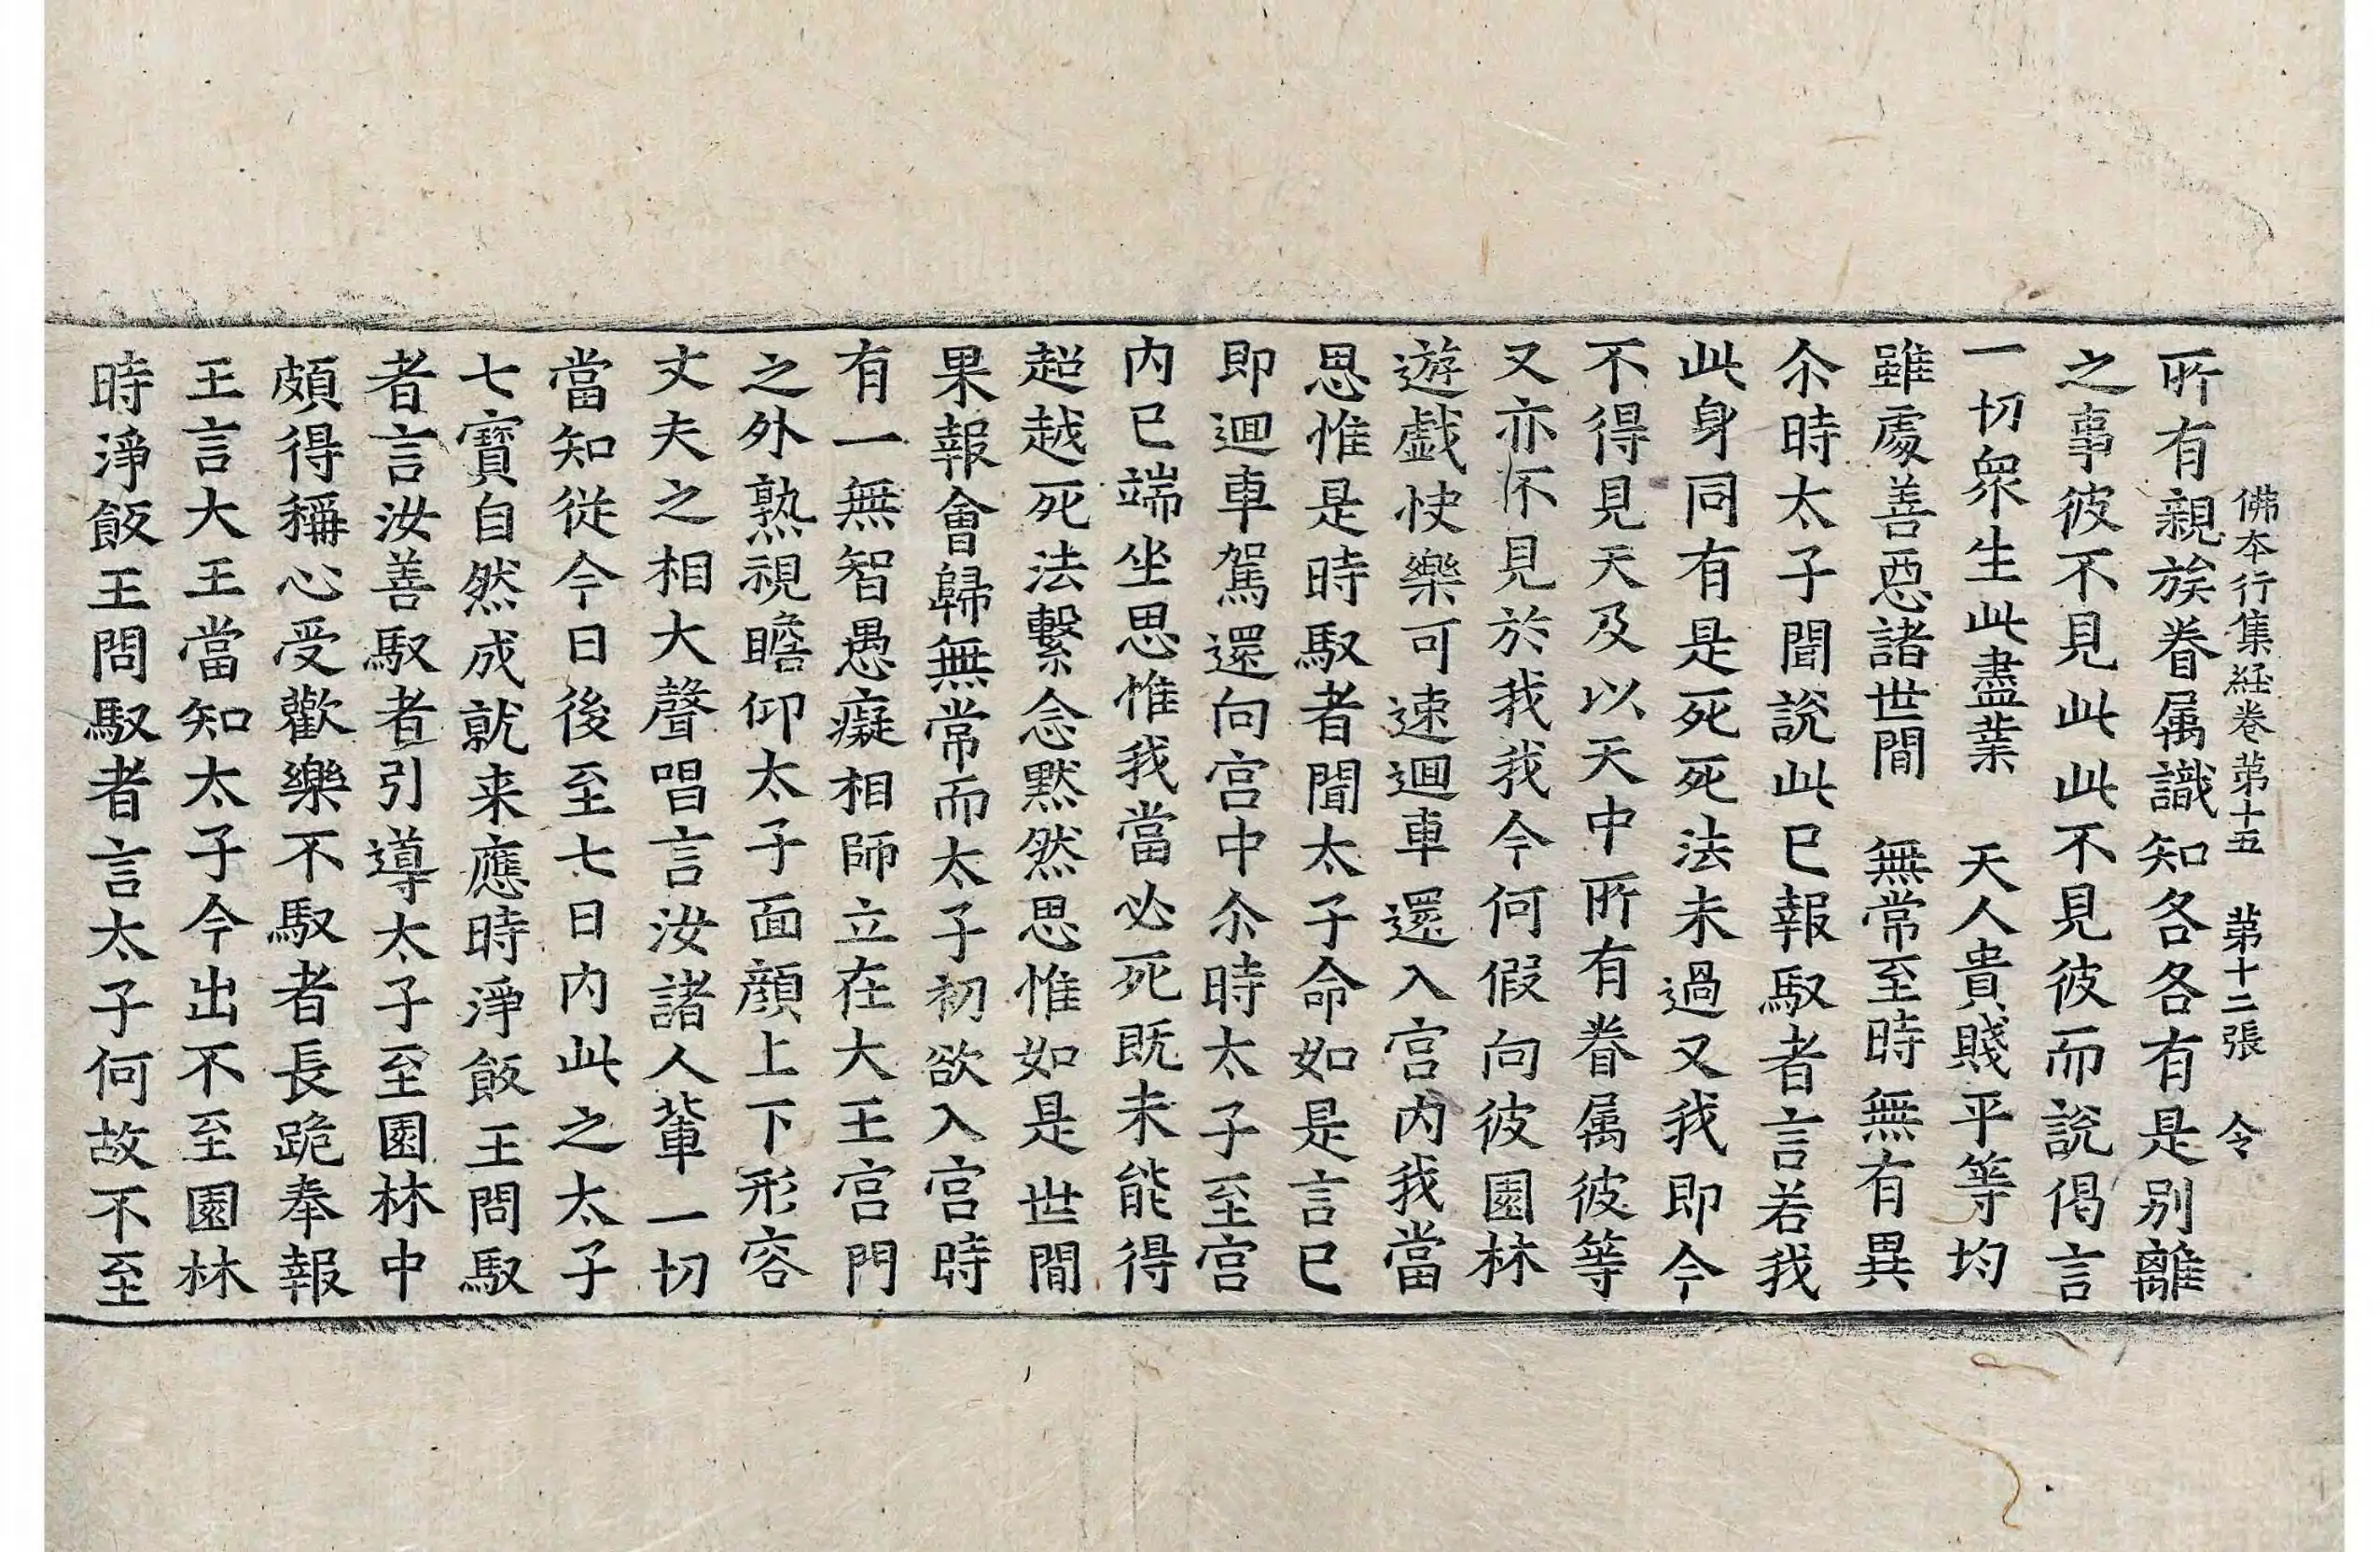 佛本行集経卷第十五 第十二張 令
所有親族眷属識知各各有是別離
之事彼不見此此不見彼而說偈言
一切衆生此盡業 天人貴賤平等均
雖處善惡諸世間 無常至時無有異
尒時太子聞說此已報馭者言若我
此身同有是死死法未過又我即今
不得見天及以天中所有眷属彼等
又亦不見於我我今何假向彼園林
遊戲快樂可速迴車還入宫内我當
思惟是時馭者聞太子命如是言已
即迴車駕還向宫中尒時太子至宫
内已端坐思惟我當必死既未能得
超越死法繫念黙然思惟如是世間
果報會歸無常而太子初欲入宫時
有一無智愚癡相師立在大王宫門
之外熟視瞻仰太子面顔上下形容
丈夫之相大聲唱言汝諸人輩一切
當知從今日後至七日内此之太子
七寳自然成就来應時淨飯王問馭
者言汝善馭者引導太子至園林中
頗得稱心受歡樂不馭者長跪奉報
王言大王當知太子今出不至園林
時淨飯王問馭者言太子何故不至